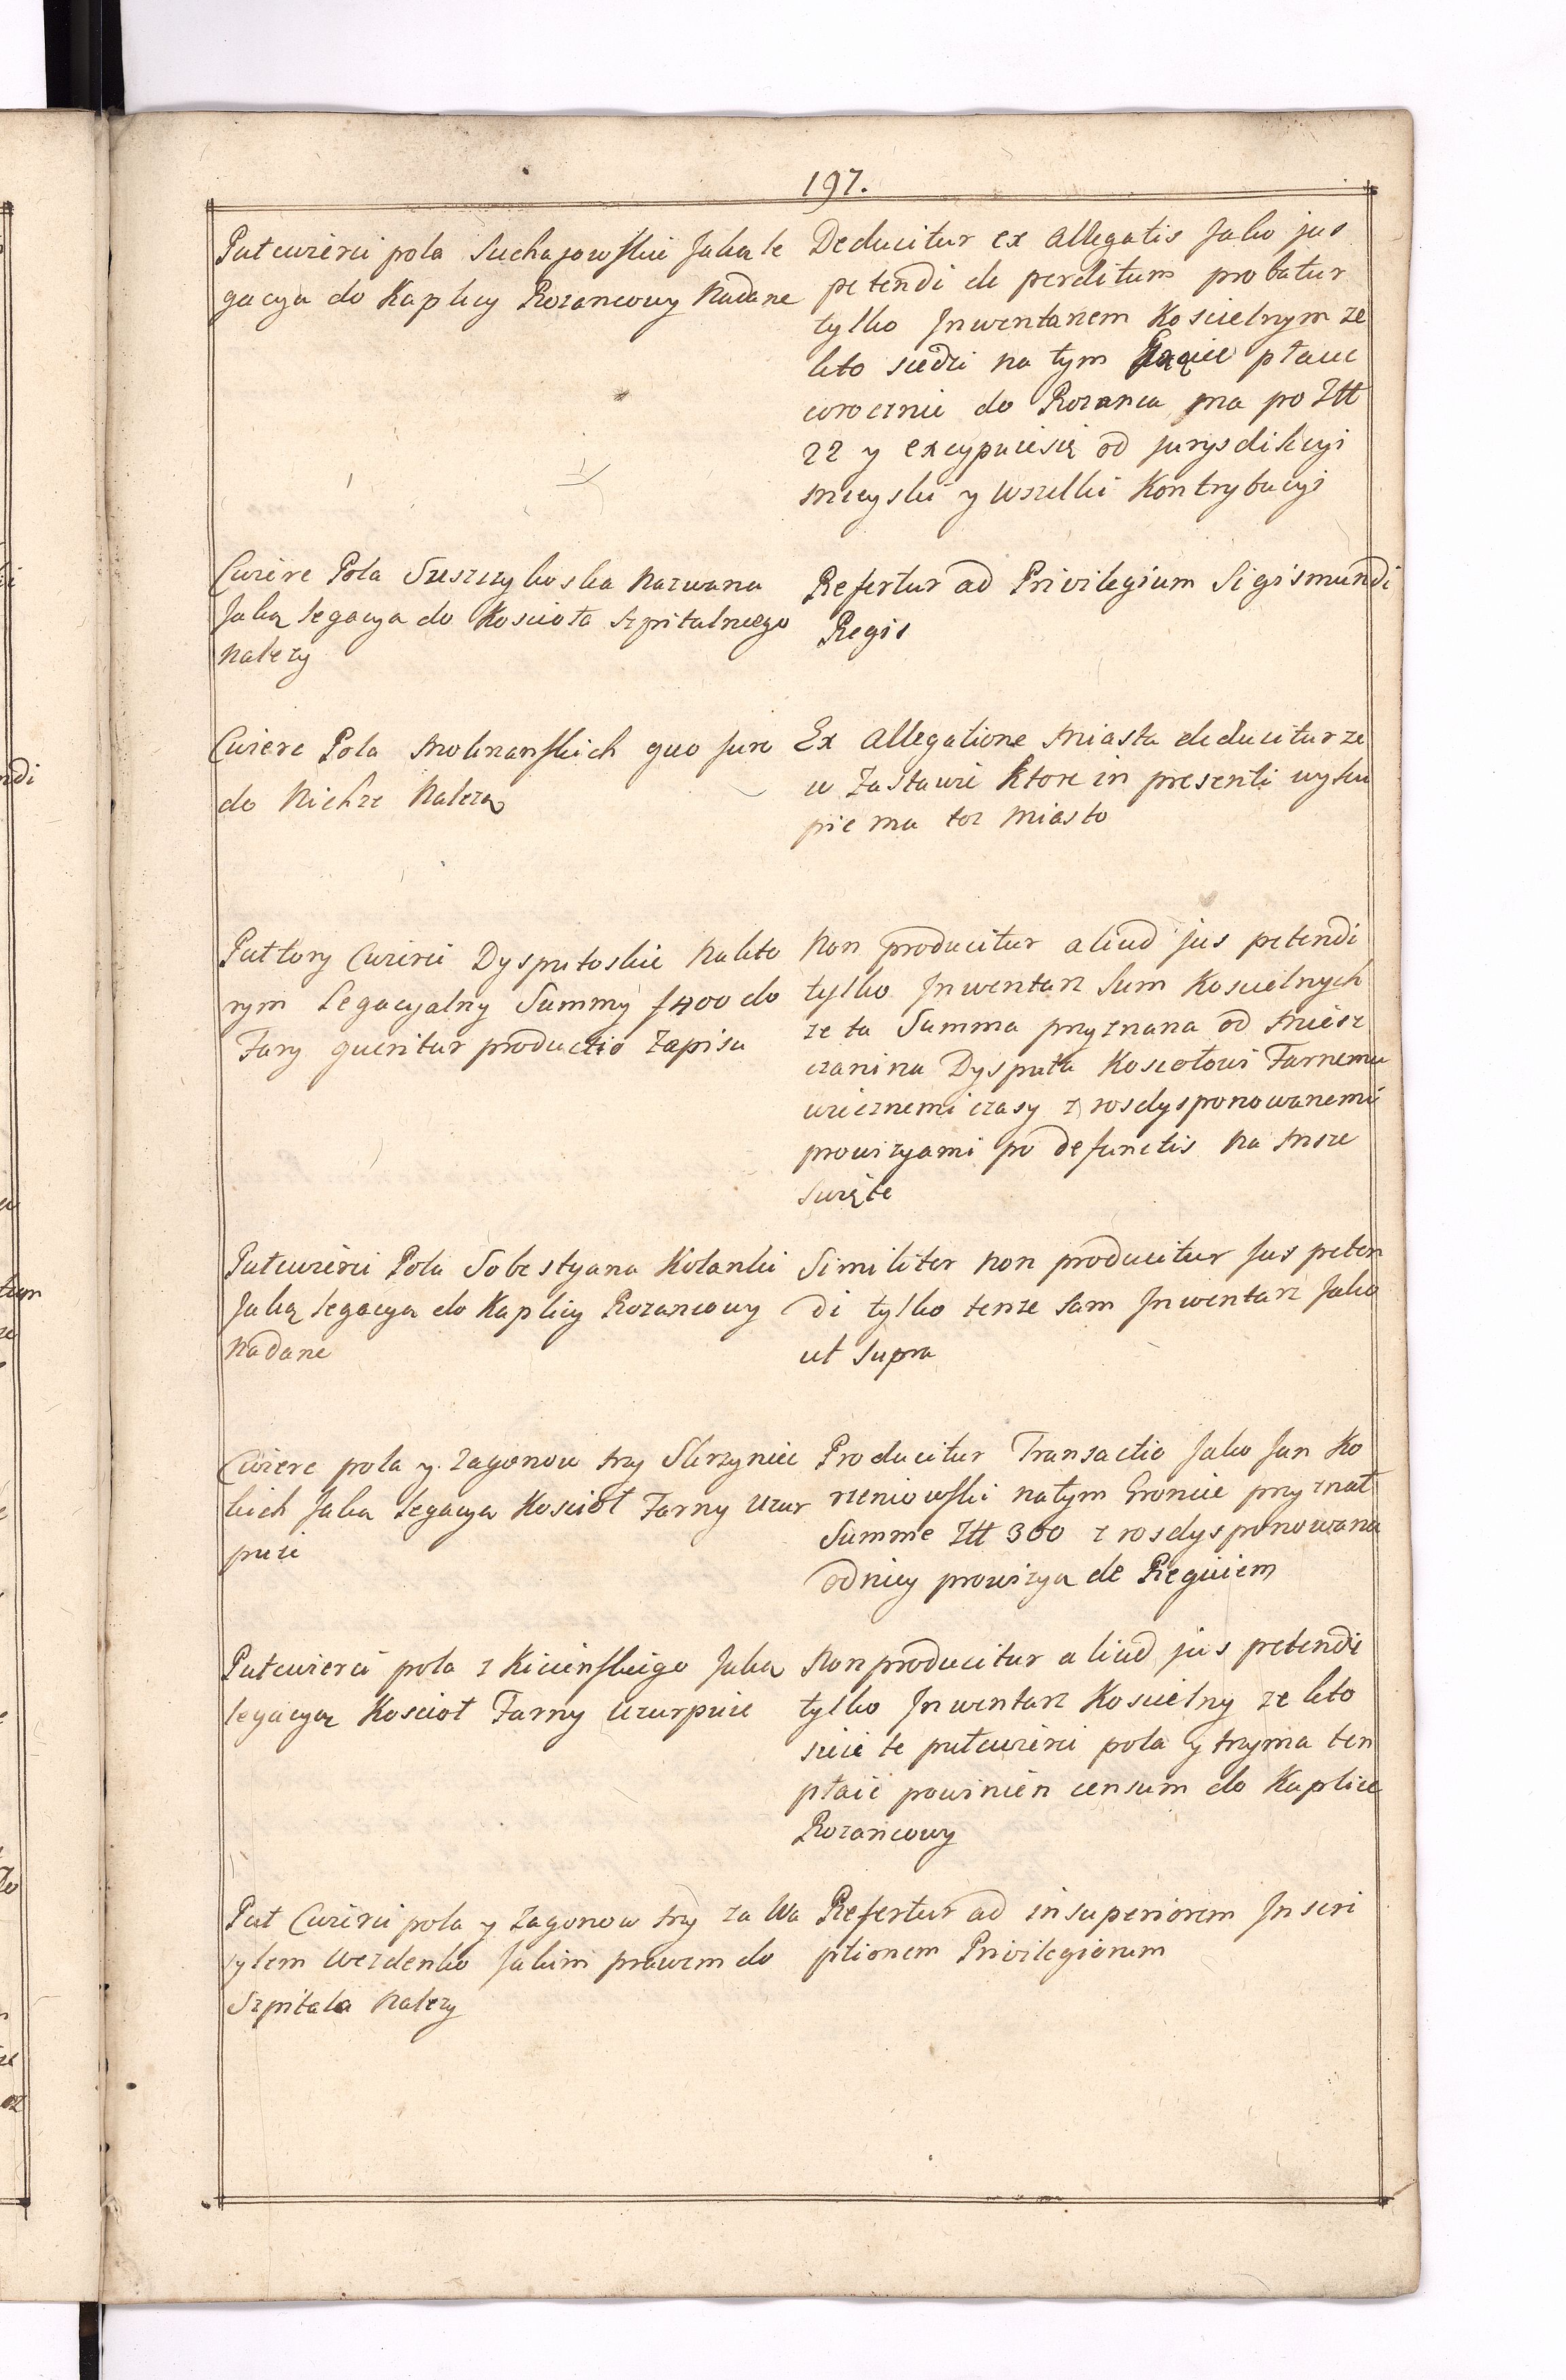 197.
Pułcwierci pola Suchajowskie Jaką le
gacyą do Kaplicy Rozancowy Nadane
Deducitur ex Allegatis Jako jus
petendi de perditum probatur
tylko Jnwentarzem Koscielnym ze
kto siedzi na tym placic
corocznie do Rozanca ma po Złł
22 y excypuiesię od jurysdikcyi
mieyski y wszelki Kontrybucyi
Cwierc Pola Szeszczykoska Nazwana
Jaką legacyą do Koscioła Szpitalnego
Nalezy
Refertur ad Privilegium Sigismundi
Regis
Cwierc Pola Molinanskich quo jure
do Nichze Nalezą
Ex Allegatione Miasta deducitur ze
w Zastawie ktore in presenti wyku
pic ma toz Miasto
Pułtory Cwierci Dysputoskie Nakto
rym Legacyalny Summy f 400 do
Fary queritur productio Zapisu
Non producitur aliud jus petendi
tylko Jnwentarz Sum Koscielnych
ze ta Summa przyznana od Miesz
czanina Dysputa Kosciołowi Farnemu
wiecznemi czasy z rosdysponowanemi
prowizyami po defunctis Na Msze
Swięte
Pułcwierci Pola Sobestyana Kolanki
Jaką legacyą do Kaplicy Rozancowy
Nadane
Similiter non producitur Jus peten
di tylko tenze sam Jnwentarz Jako
ut supra
Cwierc pola y Zagonow trzy Skrzyniec
kich Jaka Legacya Kosciół Farny Uzur
puie
Producitur Transactio Jako Jan Ko
rzeniowski natym Groncie przyznał
Summe Złł 300 z rosdysponowaną
odniey prowizyą de Requiem
Pułcwierci pola z Kicinskiego Jaką
legacyą Kosciół Farny Uzurpuie
Non producitur aliud jus petendi
tylko Jnwentarz Koscielny ze kto
sieie te pułcwierci pola y trzyma ten
płacic powinien censum do Kaplice
Rozancowy
Puł Cwierci pola y Zagonow trzy za Wa
sylem Wezdenko Jakim prawem do
Szpitala Nalezy
Refertur ad insuperiorem Jnscri
ptionem Privilegiorum